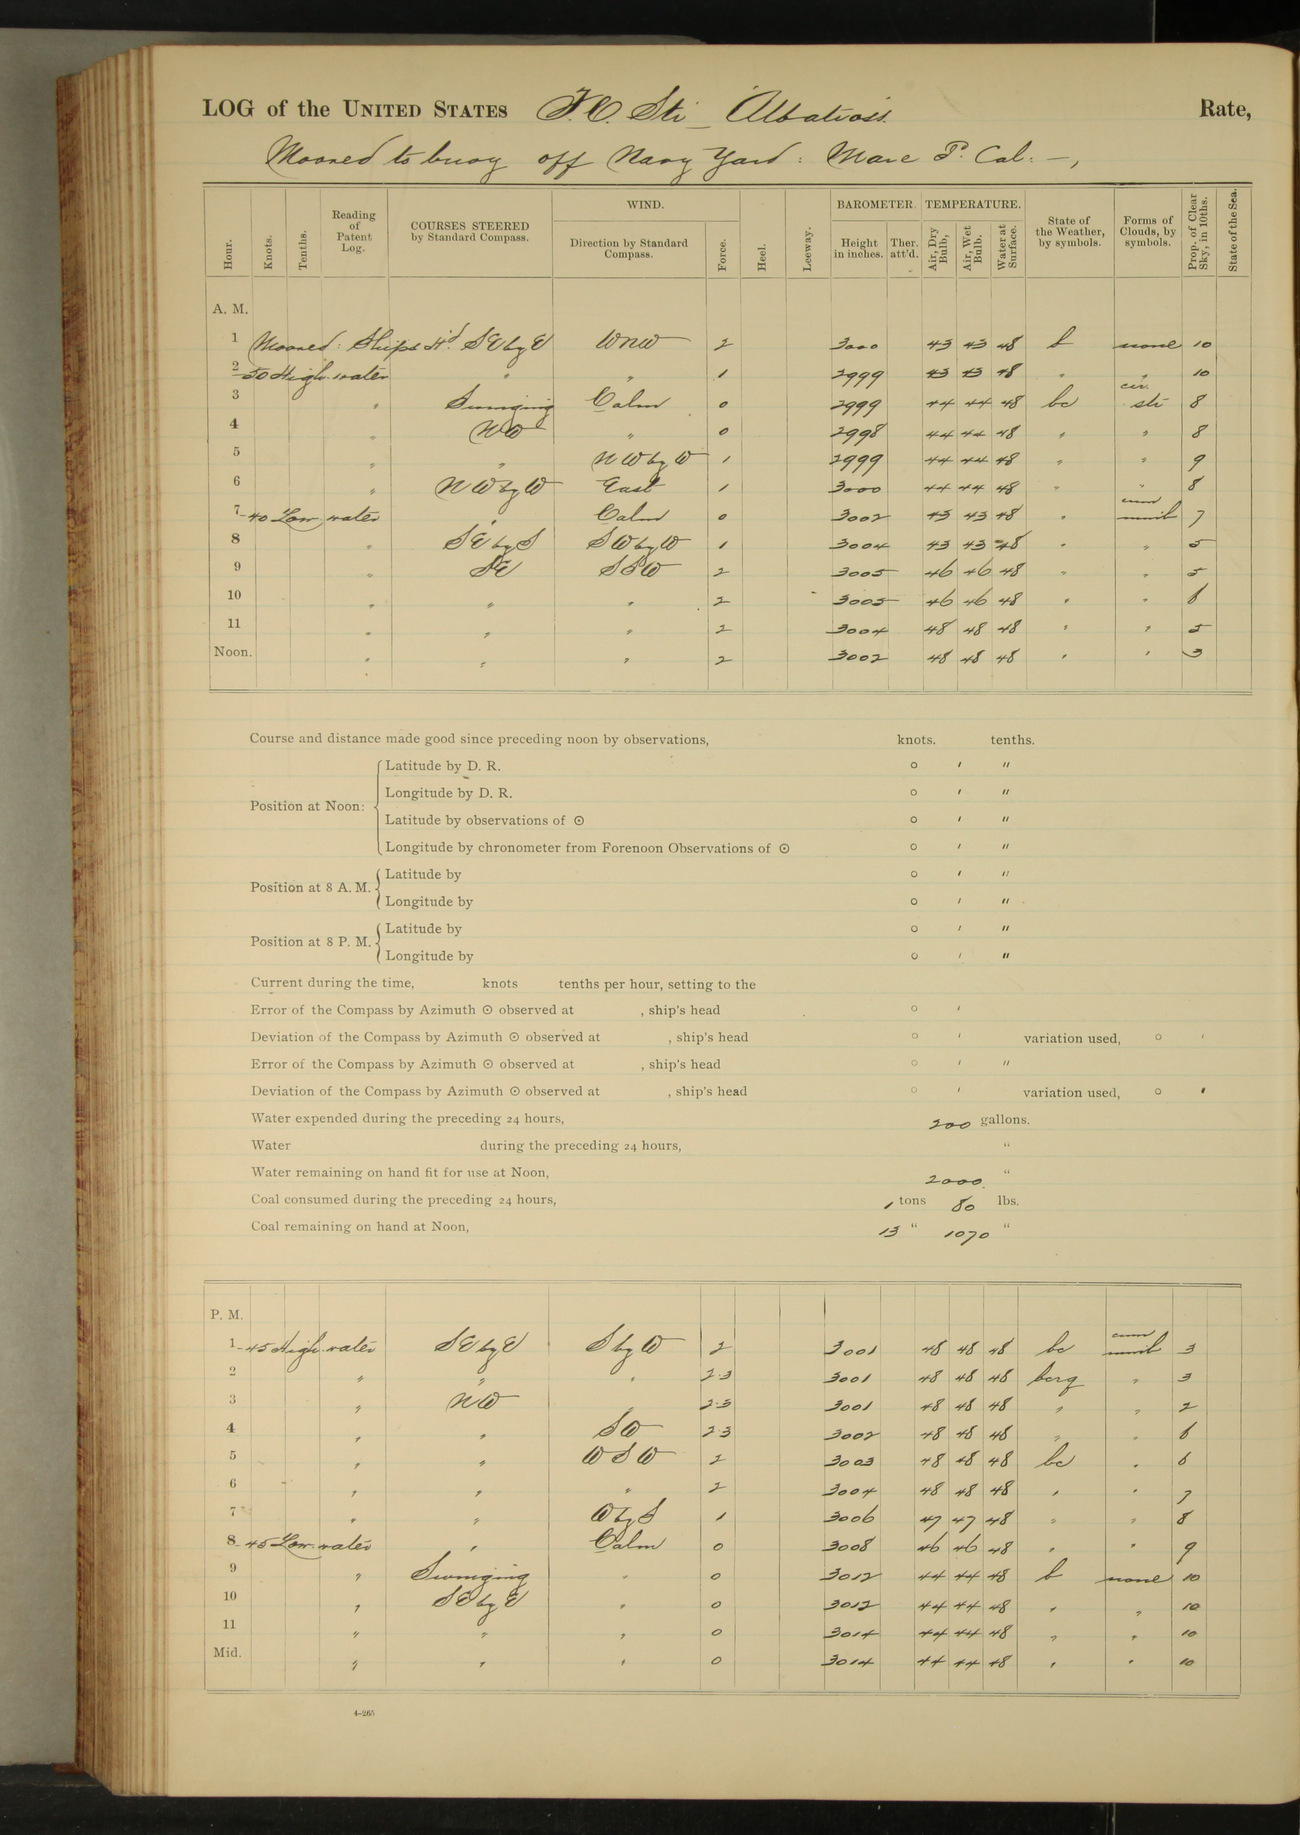 LOG of the UNITED STATES F. C. Str Albatross Rate,
Moored to buoy off Navy Yard: Mare I. Cal: —,
Hour. Knots. Tenths. Reading of Patent Log. COURSES STEERED by Standard Compass. WIND. Direction by Standard Compass. Force. Heel. Leeway. BAROMETER. Height in inches. Ther. att'd. TEMPERATURE. Air, Dry Bulb, Air, Wet Bulb. Water at Surface. State of the Weather, by symbols. Forms of Clouds, by symbols. Prop. of Clear Sky, in 10ths. State of the Sea.
A. M.
1 Moored: Ships Hd SE by E WNW 2 3000 43 43 48 b none 10
2-50 High water " " 1 2999 43 43 48 " " 10
3 " Swinging Calm 0 2999 44 44 48 bc cir. str 8
4 " NW " 0 2998 44 44 48 " " 8
5 " " NW by W 1 2999 44 44 48 " " 9
6 " NW by W East 1 3000 44 44 48 " " 8
7-40 Low water " Calm 0 3002 43 43 48 " cum nimb 7
8 " SE by S SW by W 1 3004 43 43 48 " " 5
9 " SE SSW 2 3005 46 46 48 " " 5
10 " " " 2 3005 46 46 48 " " 6
11 " " " 2 3004 48 48 48 " " 5
Noon. " " " 2 3002 48 48 48 " " 3
Course and distance made good since preceding noon by observations, knots. tenths.
Position at Noon:
Latitude by D. R. ° ′ ″
Longitude by D. R. ° ′ ″
Latitude by observations of ⊙ ° ′ ″
Longitude by chronometer from Forenoon Observations of ⊙ ° ′ ″
Position at 8 A. M.
Latitude by ° ′ ″
Longitude by ° ′ ″
Position at 8 P. M.
Latitude by ° ′ ″
Longitude by ° ′ ″
Current during the time, knots tenths per hour, setting to the
Error of the Compass by Azimuth ⊙ observed at , ship's head ° ′
Deviation of the Compass by Azimuth ⊙ observed at , ship's head ° ′ variation used, ° ′
Error of the Compass by Azimuth ⊙ observed at , ship's head ° ′ ″
Deviation of the Compass by Azimuth ⊙ observed at , ship's head ° ′ variation used, ° ′
Water expended during the preceding 24 hours, 200 gallons.
Water during the preceding 24 hours, "
Water remaining on hand fit for use at Noon, 2000 "
Coal consumed during the preceding 24 hours, 1 tons 80 lbs.
Coal remaining on hand at Noon, 13 " 1070 "
P. M.
1-45 High water SE by E S by W 2 3001 48 48 48 bc cum nimb 3
2 " " " 2-3 3001 48 48 48 bcrq " 3
3 " NW " 2-3 3001 48 48 48 " " 2
4 " " SW 2-3 3002 48 48 48 " " 6
5 " " WSW 2 3003 48 48 48 bc " 6
6 " " " 2 3004 48 48 48 " " 7
7 " " W by S 1 3006 47 47 48 " " 8
8-45 Low water " Calm 0 3008 46 46 48 " " 9
9 " Swinging " 0 3012 44 44 48 b none 10
10 " SE by E " 0 3012 44 44 48 " " 10
11 " " " 0 3014 44 44 48 " " 10
Mid. " " " 0 3014 44 44 48 " " 10
4-265